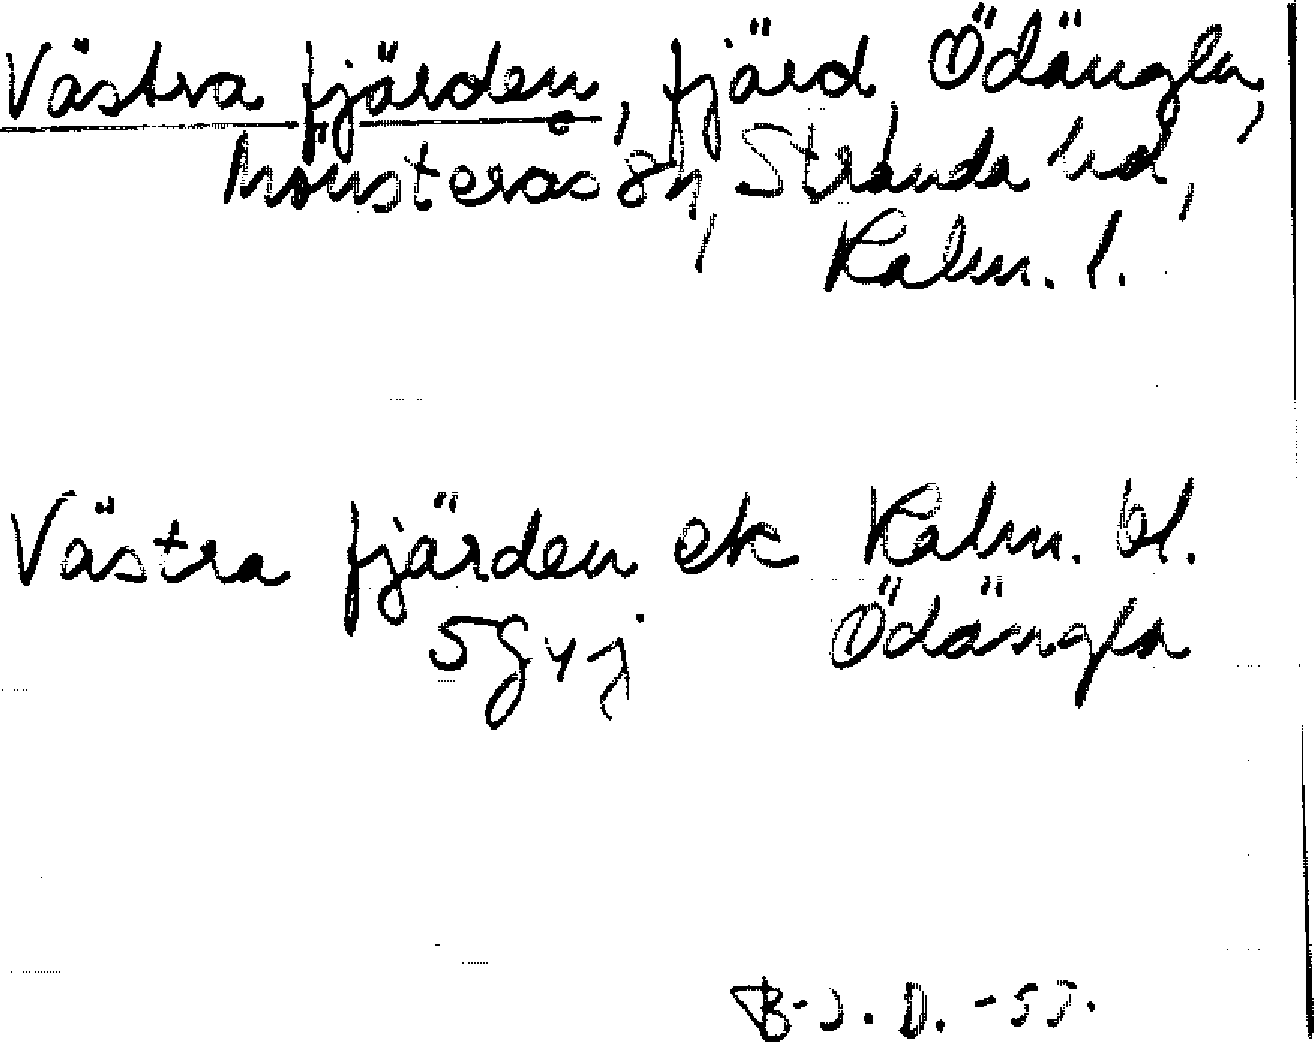 Västra fjärden, fjärd, Ödängla,
Mönsterås sn, Stranda hd,
Kalm. l.
Västra fjärden ek Kalm. bl.
5g4j Ödängla
B-J. D. -53.